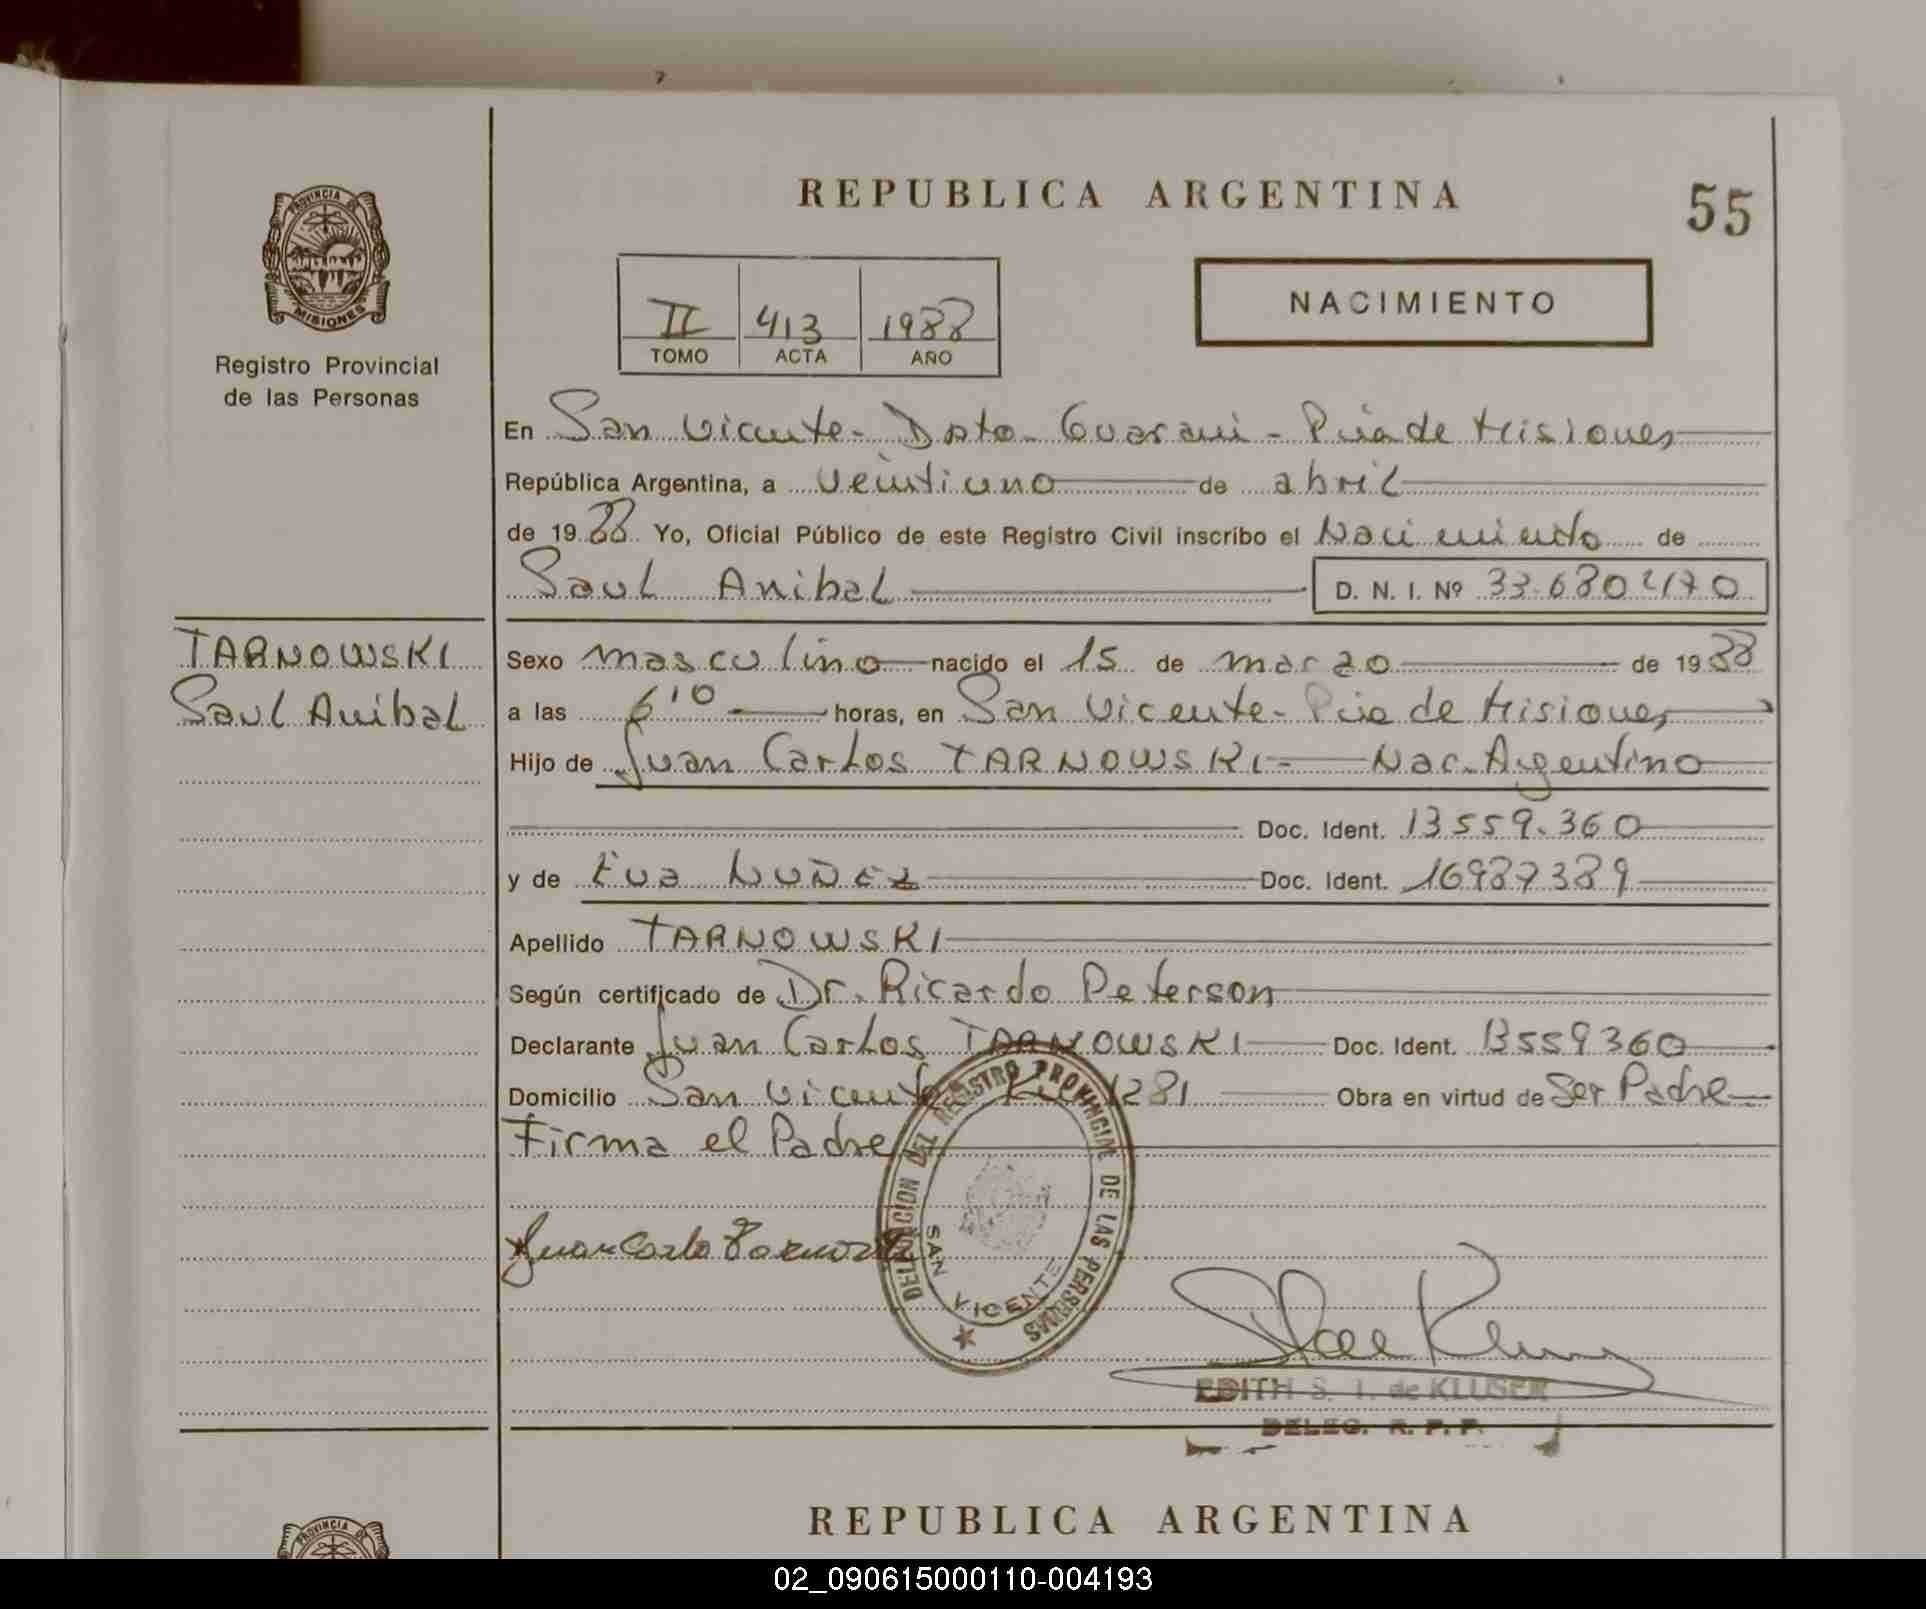 REPUBLICA ARGENTINA
55
PROVINCIA DE
MISIONES
Registro Provincial
de las Personas
II 413 1988
TOMO ACTA AÑO
NACIMIENTO
En San Vicente - Dpto Guarani - Pcia de Misiones
República Argentina, a veintiuno de abril
de 1988 Yo, Oficial Público de este Registro Civil inscribo el Nacimiento de
Saul Anibal D. N. I. Nº 33.680470
TARNOWSKI
Saul Anibal
Sexo masculino nacido el 15 de marzo de 1988
a las 6'10 horas, en San Vicente - Pcia de Misiones
Hijo de Juan Carlos TARNOWSKI - Nac. Argentino
Doc. Ident. 13559.360
y de Eva NUÑEZ Doc. Ident. 16987389
Apellido TARNOWSKI
Según certificado de Dr. Ricardo Peterson
Declarante Juan Carlos TARNOWSKI Doc. Ident. 13559360
Domicilio San Vicente Km 1281 Obra en virtud de Ser Padre
Firma el Padre
DELEGACION DEL REGISTRO PROVINCIAL DE LAS PERSONAS
SAN VICENTE
EDITH S. I. de KLUSER
DELEG. R. P. P.
REPUBLICA ARGENTINA
PROVINCIA DE
02_090615000110-004193